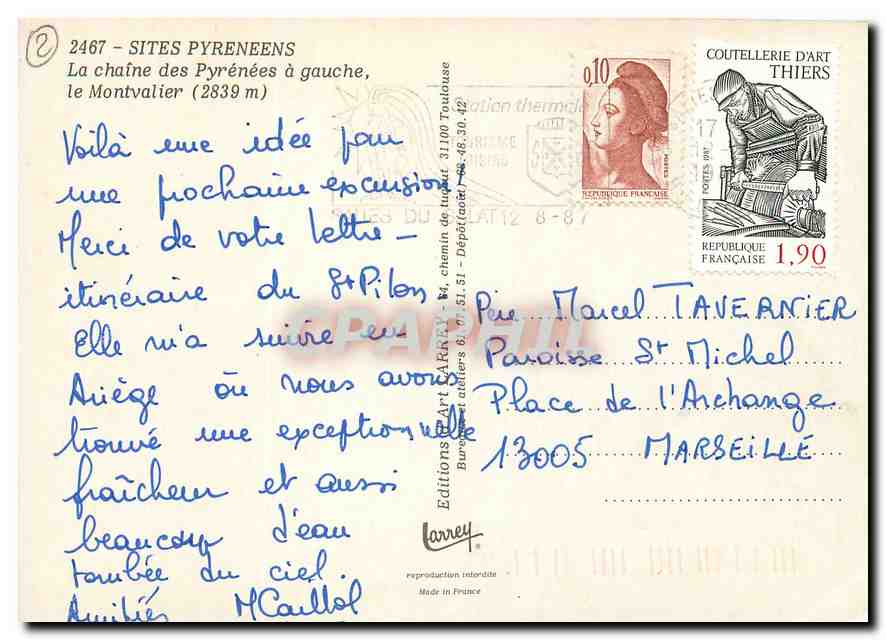 2
2467 – SITES PYRENEENS
La chaîne des Pyrénées à gauche,
le Montvalier (2839 m)
Voilà une idée pour
une prochaine excursion
Merci de votre lettre –
itinéraire du St Pilon
Elle m'a suivie en
Ariège où nous avons
trouvé une exceptionnelle
fraîcheur et aussi
beaucoup d'eau
tombée du ciel.
Amitiés MCaillol
Editions d'Art LARREY - 64, chemin de tucaut, 31100 Toulouse
Bureaux et ateliers 61.07.51.51 - Dépôt (août) 68.48.30.42
Larrey
reproduction interdite
Made in France
station thermale
TOURISME
12 8-87
17
0,10
POSTES
REPUBLIQUE FRANÇAISE
COUTELLERIE D'ART
THIERS
POSTES 1987
REPUBLIQUE
FRANÇAISE 1,90
Père Marcel TAVERNIER
Paroisse St Michel
Place de l'Archange
13005 MARSEILLE
CPAPHIL